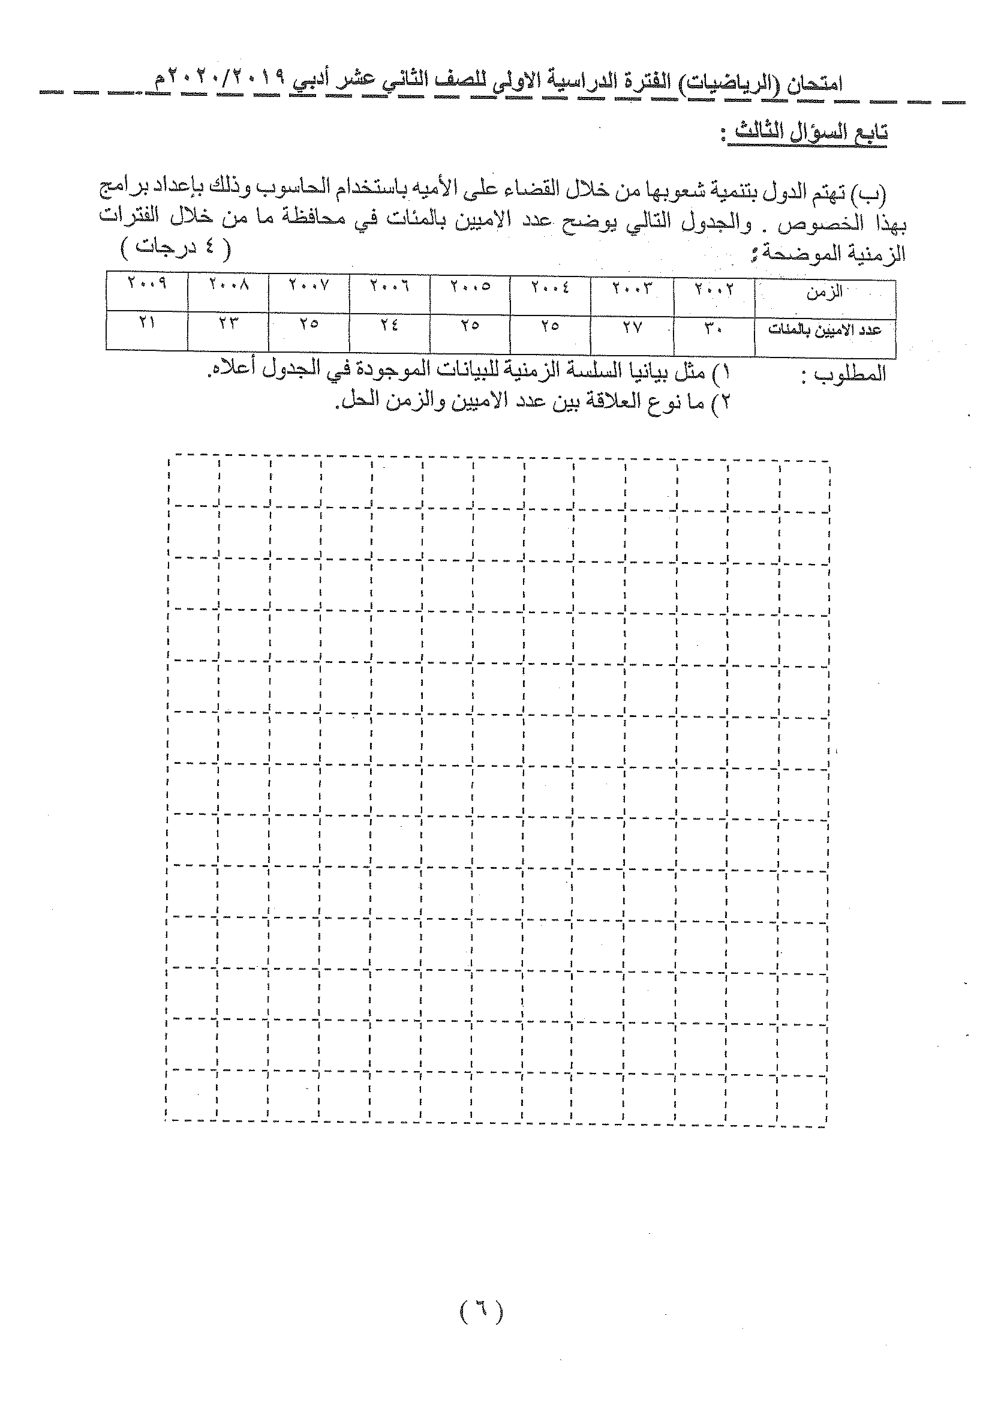 امتحان (الرياضيات) الفترة الدراسية الاولى للصف الثاني عشر أدبي ٢٠٢٠/٢٠١٩م
تابع السؤال الثالث :
(ب) تهتم الدول بتنمية شعوبها من خلال القضاء على الأميه باستخدام الحاسوب وذلك بإعداد برامج
بهذا الخصوص . والجدول التالي يوضح عدد الاميين بالمئات في محافظة ما من خلال الفترات
الزمنية الموضحة: ( ٤ درجات )
الزمن ٢٠٠٢ ٢٠٠٣ ٢٠٠٤ ٢٠٠٥ ٢٠٠٦ ٢٠٠٧ ٢٠٠٨ ٢٠٠٩
عدد الاميين بالمئات ٣٠ ٢٧ ٢٥ ٢٥ ٢٤ ٢٥ ٢٣ ٢١
المطلوب : ١) مثل بيانيا السلسة الزمنية للبيانات الموجودة في الجدول أعلاه.
٢) ما نوع العلاقة بين عدد الاميين والزمن الحل.
( ٦ )